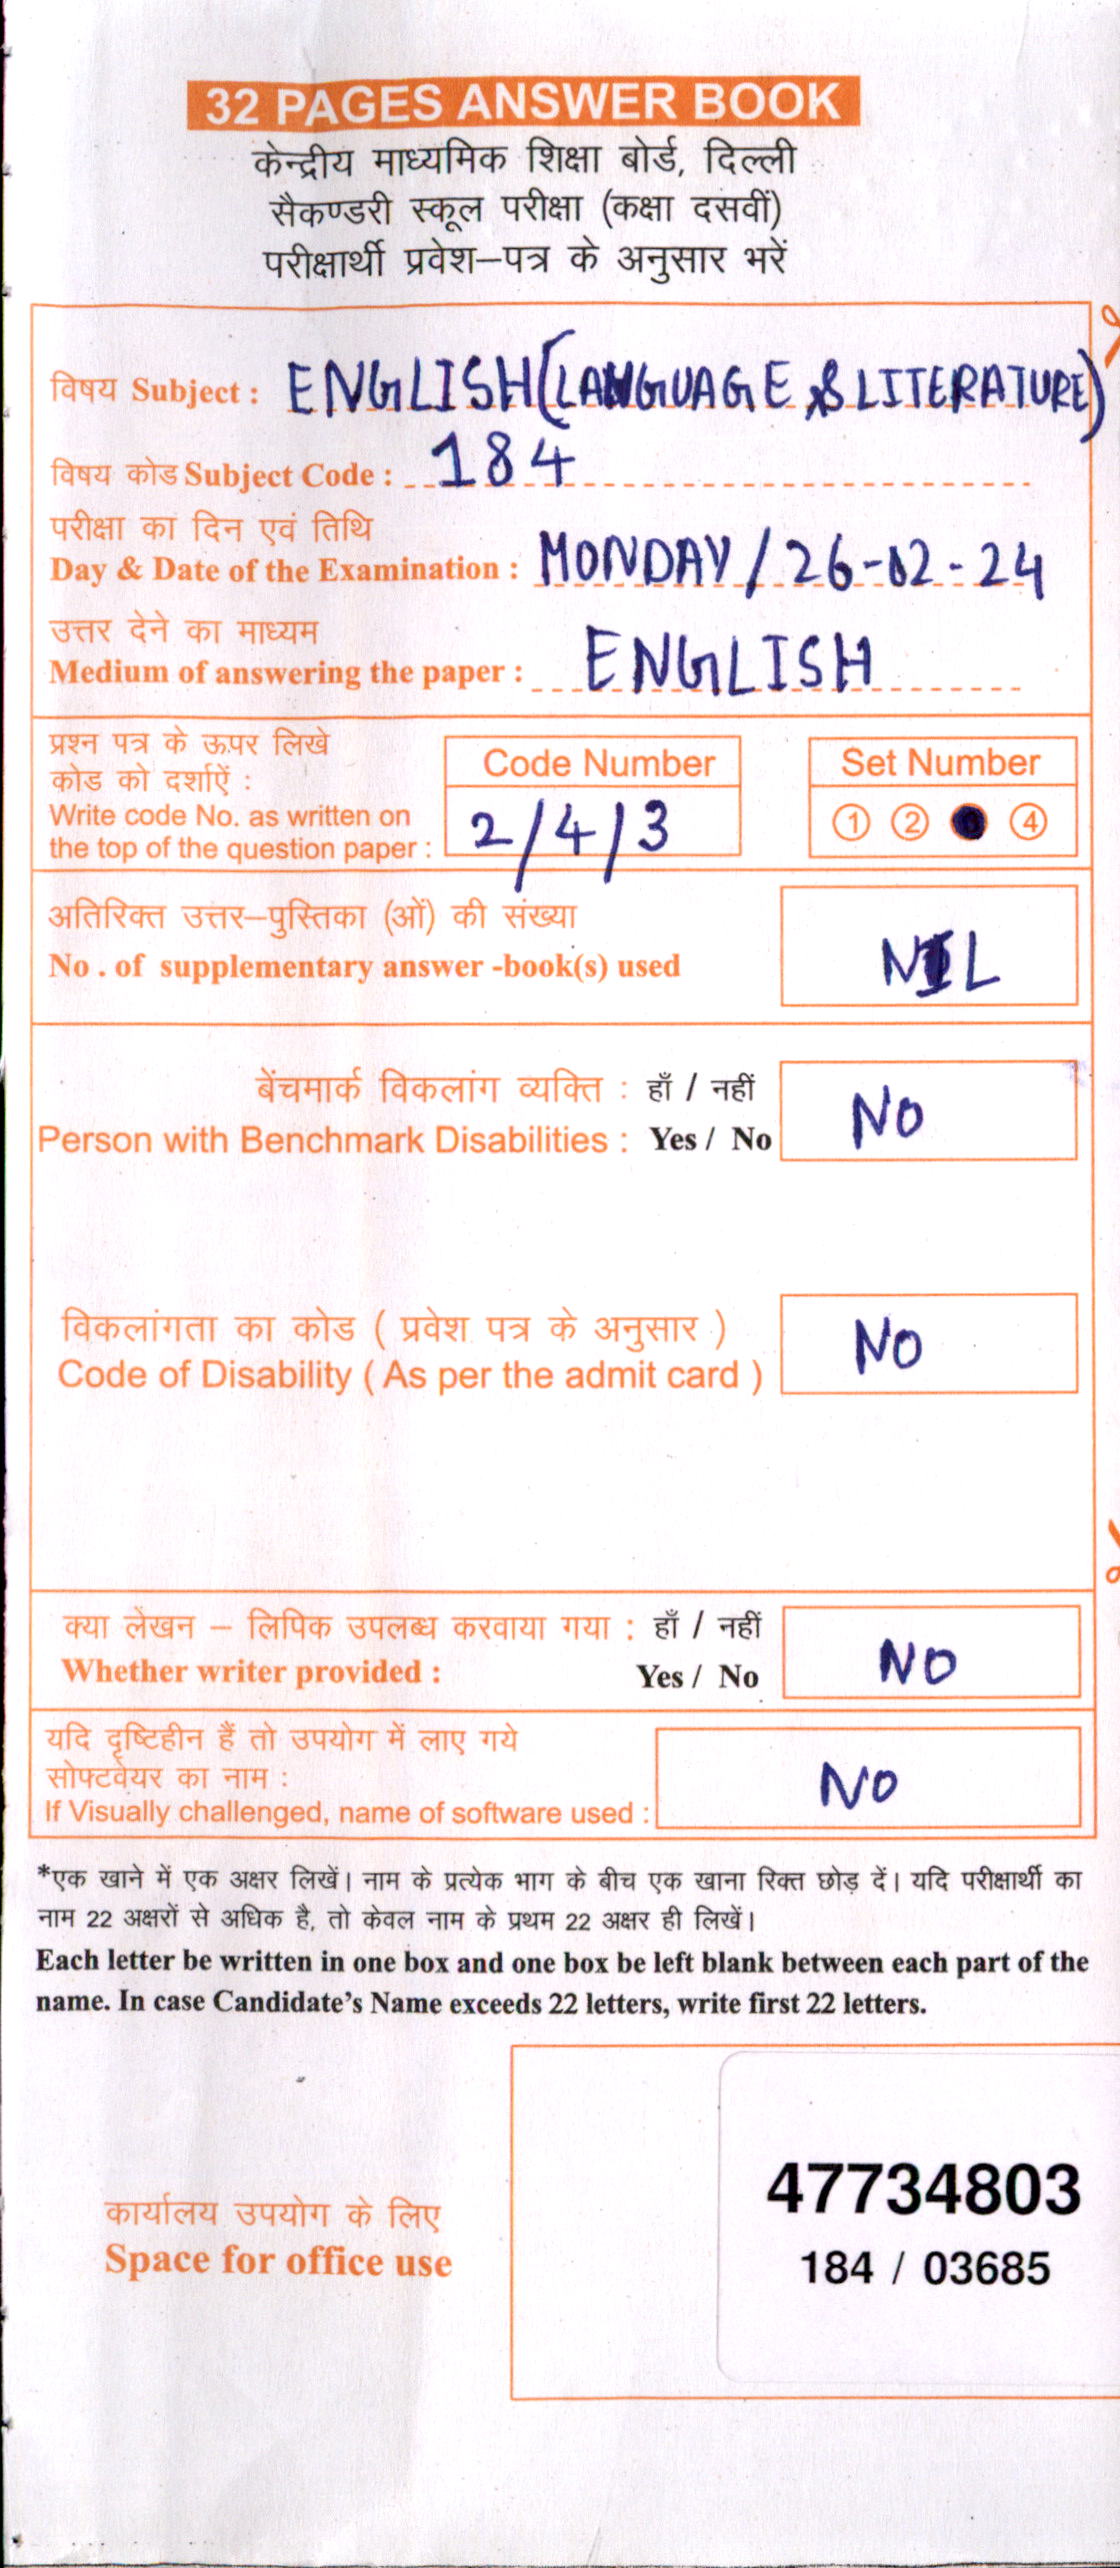 32 PAGES ANSWER BOOK
केन्द्रीय माध्यमिक शिक्षा बोर्ड, दिल्ली
सैकण्डरी स्कूल परीक्षा (कक्षा दसवीं)
परीक्षार्थी प्रवेश–पत्र के अनुसार भरें
विषय Subject : ENGLISH (LANGUAGE & LITERATURE)
विषय कोड Subject Code : 184
परीक्षा का दिन एवं तिथि
Day & Date of the Examination : MONDAY / 26-02-24
उत्तर देने का माध्यम
Medium of answering the paper : ENGLISH
प्रश्न पत्र के ऊपर लिखे
कोड को दर्शाऐं :
Write code No. as written on
the top of the question paper :
Code Number
2/4/3
Set Number
1 2 4
अतिरिक्त उत्तर–पुस्तिका (ओं) की संख्या
No . of supplementary answer -book(s) used
NIL
बेंचमार्क विकलांग व्यक्ति : हाँ / नहीं
Person with Benchmark Disabilities : Yes / No
NO
विकलांगता का कोड ( प्रवेश पत्र के अनुसार )
Code of Disability ( As per the admit card )
NO
क्या लेखन – लिपिक उपलब्ध करवाया गया : हाँ / नहीं
Whether writer provided : Yes / No
NO
यदि दृष्टिहीन हैं तो उपयोग में लाए गये
सोफ्टवेयर का नाम :
If Visually challenged, name of software used :
NO
*एक खाने में एक अक्षर लिखें। नाम के प्रत्येक भाग के बीच एक खाना रिक्त छोड़ दें। यदि परीक्षार्थी का
नाम 22 अक्षरों से अधिक है, तो केवल नाम के प्रथम 22 अक्षर ही लिखें।
Each letter be written in one box and one box be left blank between each part of the
name. In case Candidate's Name exceeds 22 letters, write first 22 letters.
कार्यालय उपयोग के लिए
Space for office use
47734803
184 / 03685